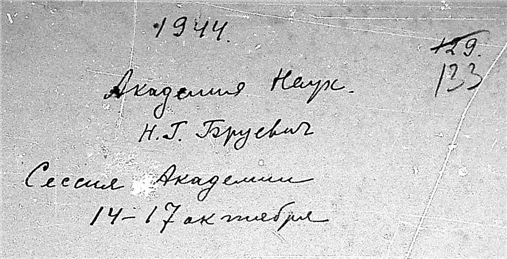 1944.
129.
133
Академия Наук.
Н.Г. Бруевич
Сессия Академии
14-17 октября